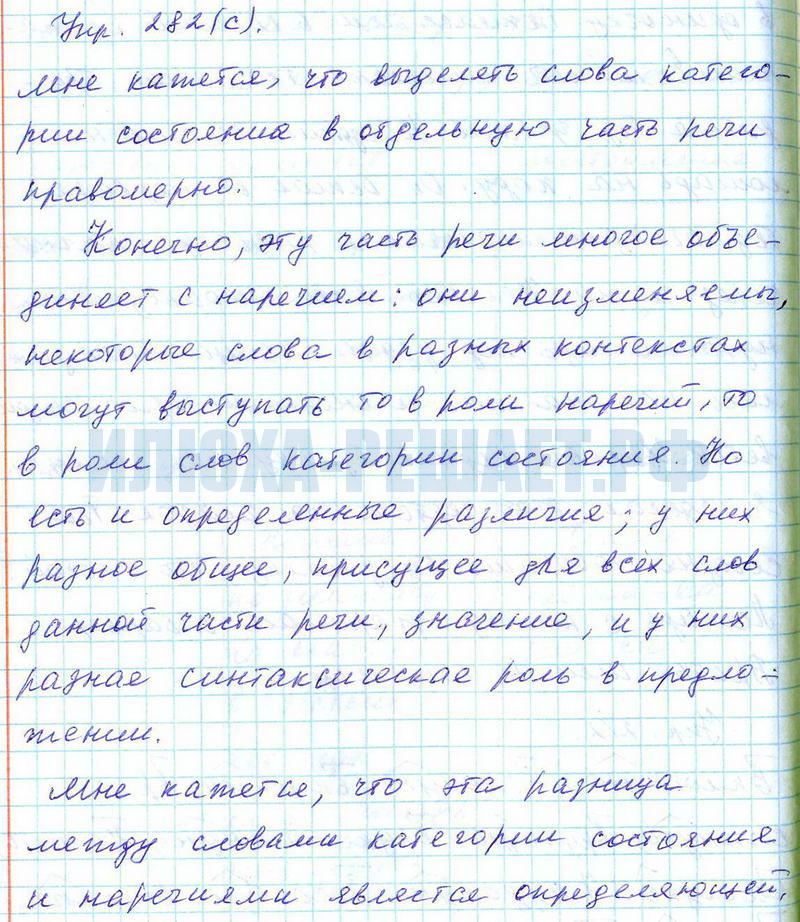 Упр. 282(с).
Мне кажется, что выделять слова катего-
рии состояния в отдельную часть речи
правомерно.
Конечно, эту часть речи многое объе-
диняет с наречием: они неизменяемы,
некоторые слова в разных контекстах
могут выступать то в роли наречий, то
ИЛЮХА-РЕШАЕТ.РФ
в роли слов категории состояния. Но
есть и определенные различия; у них
разное общее, присущее для всех слов
данной части речи, значение, и у них
разная синтаксическая роль в предло-
жении.
Мне кажется, что эта разница
между словами категории состояния
и наречиями является определяющей,